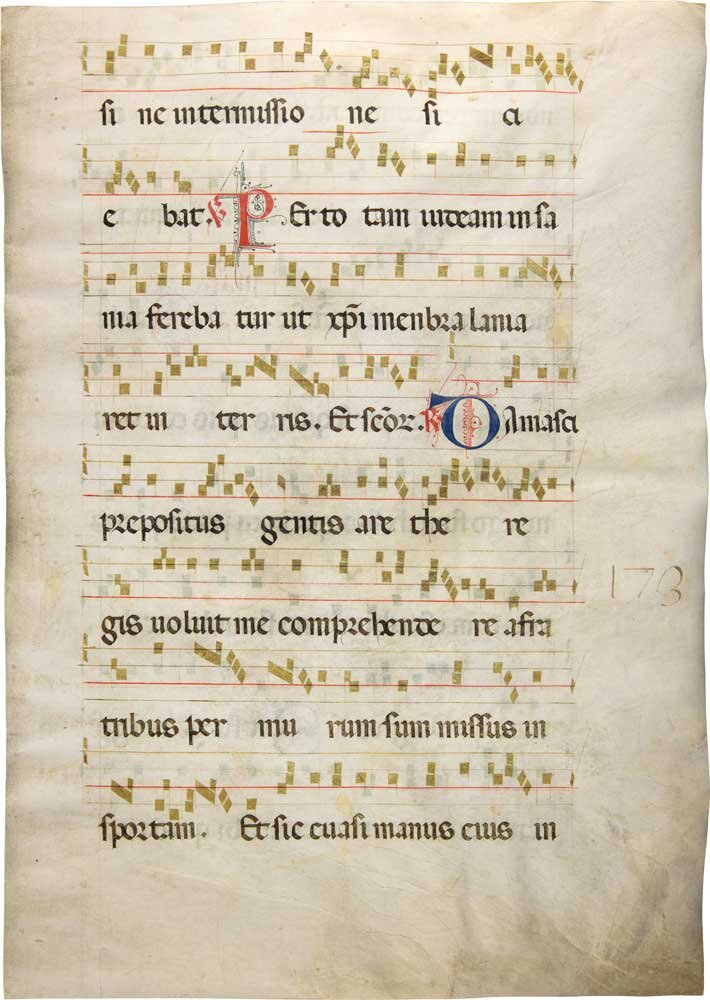 si ne intermissio ne si ci
e bat. ℣ PErto tam iudeam insa
nia fereba tur ut xp̄i menbra lania
ret in ter ris. Et scōr. ℟ DAmasci
prepositus gentis are the re
gis uoluit me comprehende re afra
tribus per mu rum sum missus in
sportam. Et sic euasi manus eius in
178